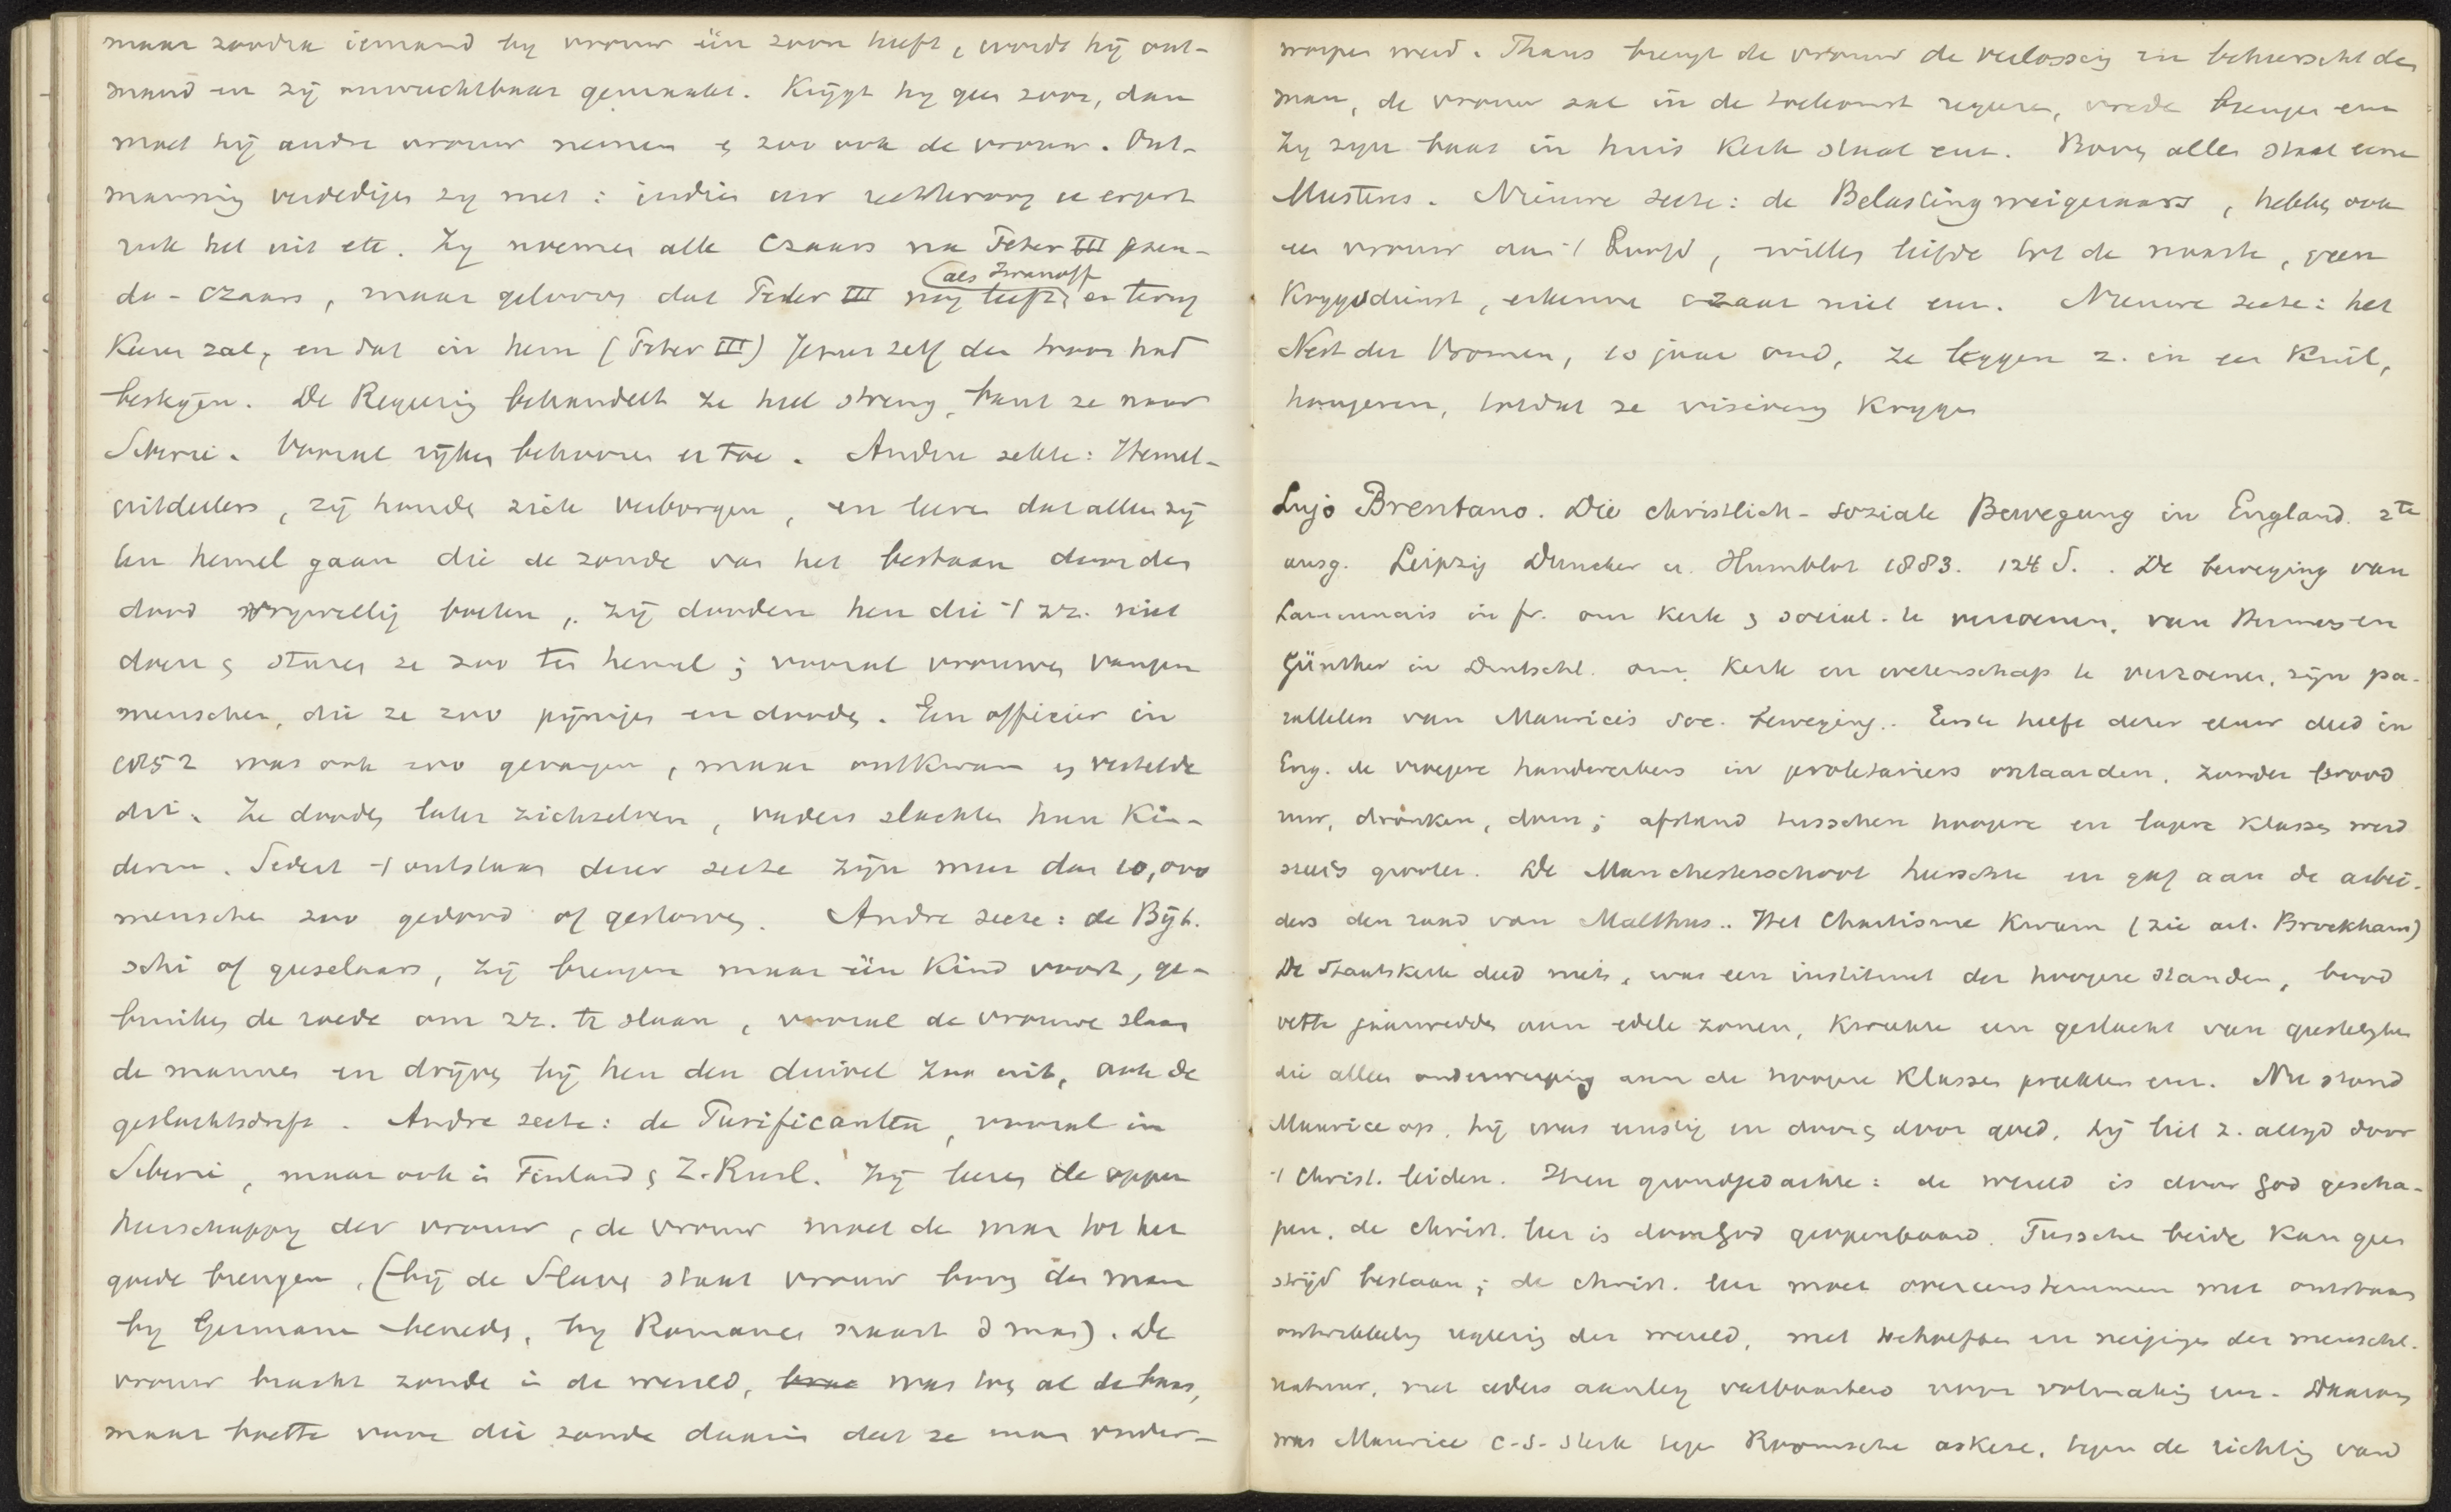 maar zoodra iemand by vrouw één zoon heeft, wordt hij ont-
mand en zij onvruchtbaar gemaakt. Krijgt hy geen zoon, dan
moet hij andre vrouw nemen & zoo ook de vrouw. Ont-
manning verdedigen zy met: indien uw rechteroog u ergert
ruk het uit etc. Zy noemen alle Czaars na Peter III pseu-
do-czaars, maar gelooven dat Peter III nog leeft, en terug
(als Iwanoff
Keeren zal, en dat in hem (Peter III) Jezus zelf den troon had
bestegen. De Regeering behandelt ze heel streng, bant ze naar
Siberie. Vooral rijken behooren er toe. Andere sekte: Hemel-
uitdeelers, zij houden zich verborgen, en leeren dat alleen zij
ten hemel gaan die de zonde van het bestaan door den
dood vrywillig boeten, zij dooden hen die 't zr. niet
doen & sturen ze zoo ten hemel; vooral vrouwen vangen
menschen, die ze zoo pijnigen en dooden. Een officier in
1852 was ook zoo gevangen, maar ontkwam en vertelde
dit. Ze dooden later zichzelven, vaders slachten hun Kin-
deren. Sedert 't ontstaan dezer secte zijn meer dan 10,000
menschen zoo gedood of gestorven. Andre secte: de Bijt-
schi of geeselaars, zij brengen maar één Kind voort, ge-
bruiken de roede om zr. te slaan, vooral de vrouwen slaan
de mannen en drijven bij hen den duivel zoo uit, ook de
geslachtsdrift. Andre secte: de Purificanten, vooral in
Siberie, maar ook in Finland & Z.-Rusl. Zij leeren de opper
heerschappy der vrouw, de vrouw moet de man tot het
goede brengen, (bij de Slaven staat vrouw boven den man
by Germanen beneden, by Romanen naast d man). De
vrouw bracht zonde in de wereld, was toen al de baas,
maar boette voor die zonde daarin dat ze man onder-
worpen werd. Thans brengt de vrouw de verlossing en beheerscht den
man, de vrouw zal in de toekomst regeeren, vrede brengen enz
Zy zyn baas in huis Kerk staat enz. Boven alles staat eene
Meesteres. Nieuwe secte: de Belastingweigeraars, hebben ook
een vrouw aan 't hoofd, willen liefde tot de naaste, geen
Krygsdienst, erkennen czaar niet enz. Nieuwe secte: het
Nest der Vromen, 10 jaar oud, ze leggen z. in een Kuil,
hongeren, totdat ze visioenen Krygen
Lujo Brentano. Die christlich-soziale Bewegung in England. 2te
ausg. Leipzig Duncker u. Humblot 1883. 124 S. . De beweging van
Lamennais in fr. om Kerk & social. te verzoenen, van Hermes en
Günther in Deutschl. om Kerk en wetenschap te verzoenen, zijn pa-
rallelen van Maurice's soc. beweging. Eerste helft dezer eeuw deed in
Eng. de vroegere handwerkers in proletariers ontaarden, zonder brood
ruw, dronken, dom; afstand tusschen hoogere en lagere Klassen werd
steeds grooter. De Manchesterschool heerschte en gaf aan de arbei-
ders den raad van Malthus.. Het Chartisme Kwam (zie art. Brockhaus)
De Staatskerk deed niets, was een instituut der hoogere standen, bood
vette jaarwedden aan edele zonen, Kweekte een geslacht van geestelyken
die alleen onderwerping aan de hoogere Klassen preekten enz. Nu stond
Maurice op, hij was ernstig en door & door goed, hij liet z. altyd door
't Christ. leiden. Zijn grondgedachte: de wereld is door God gescha-
pen, de christ. leer is door God geopenbaard. Tusschen beide Kan geen
strijd bestaan; de christ. leer moet overeenstemmen met ontstaan
ontwikkeling regeering der wereld, met behoeften en neigingen der menschel.
natuur, met ieders aanleg vatbaarheid voor volmaking enz. Daarom
was Maurice c.s. sterk tegen Roomsche askese, tegen de richting van d